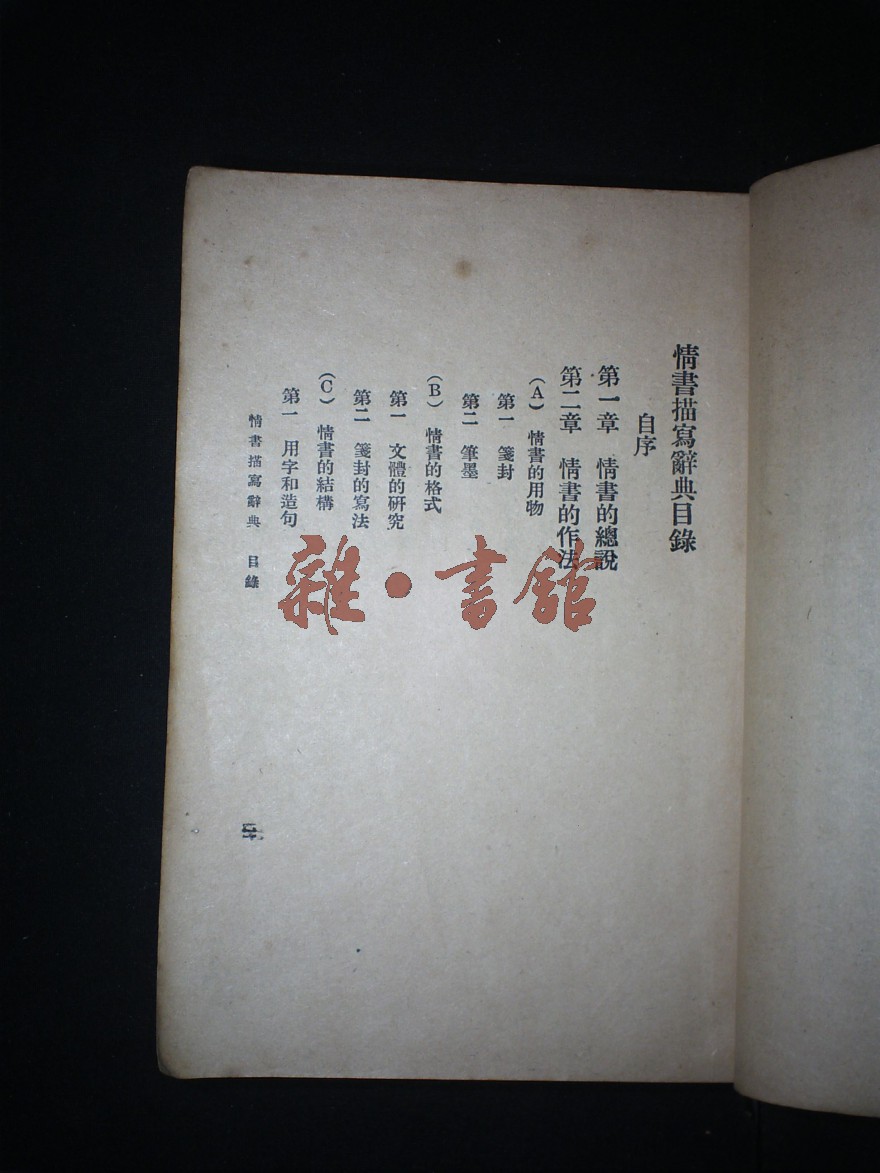 情書描寫辭典目錄
自序
第一章 情書的總說
第二章 情書的作法
(A) 情書的用物
第一 箋封
第二 筆墨
(B) 情書的格式
第一 文體的研究
第二 箋封的寫法
(C) 情書的結構
第一 用字和造句
情書描寫辭典 目錄
雜·書館